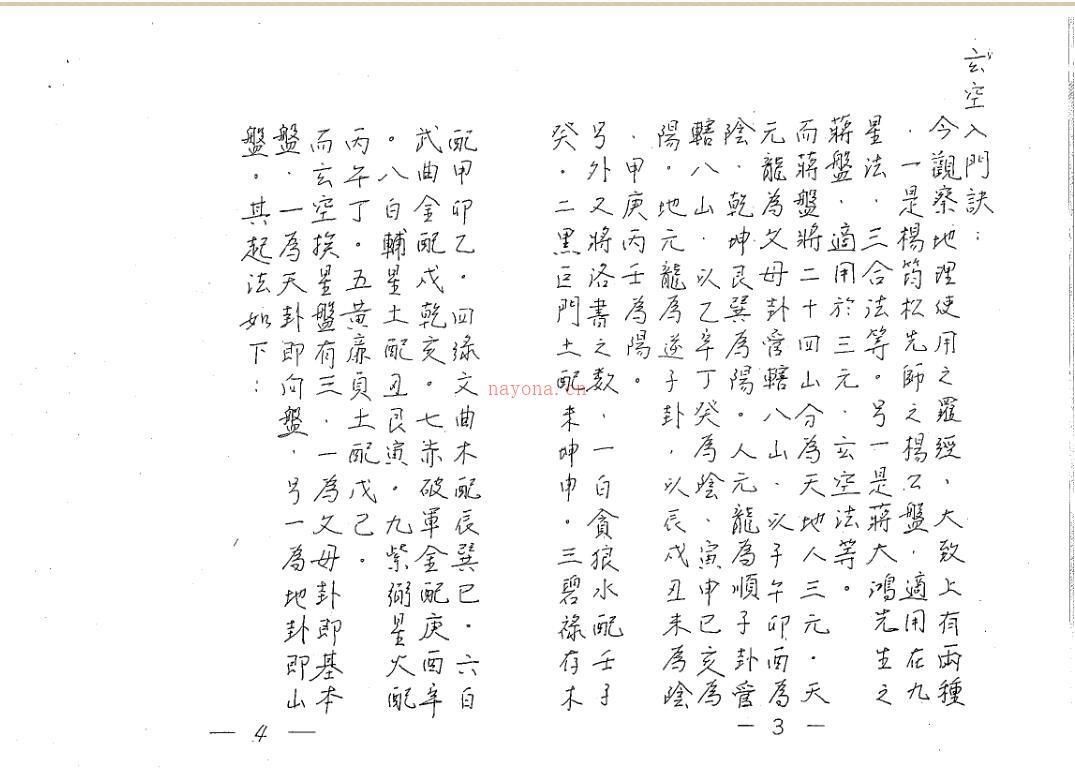 玄空入門訣：
今觀察地理使用之羅經，大致上有兩種
，一是楊筠松先師之楊公盤，適用在九
星法，三合法等。另一是蔣大鴻先生之
蔣盤，適用於三元，玄空法等。
而蔣盤將二十四山分為天地人三元，天
元龍為父母卦管轄八山，以子午卯酉為
陰，乾坤艮巽為陽。人元龍為順子卦管
轄八山，以乙辛丁癸為陰，寅申巳亥為
陽。地元龍為逆子卦，以辰戌丑未為陰
，甲庚丙壬為陽。
另外又將洛書之数，一白貪狼水配壬子
癸。二黑巨門土配未坤申。三碧祿存木
— 3 —
配甲卯乙。四綠文曲木配辰巽巳。六白
武曲金配戌乾亥。七赤破軍金配庚酉辛
。八白輔星土配丑艮寅。九紫弼星火配
丙午丁。五黃廉貞土配戊己。
而玄空挨星盤有三，一為父母卦即基本
盤，一為天卦即向盤，另一為地卦即山
盤。其起法如下：
— 4 —
nayona.cn